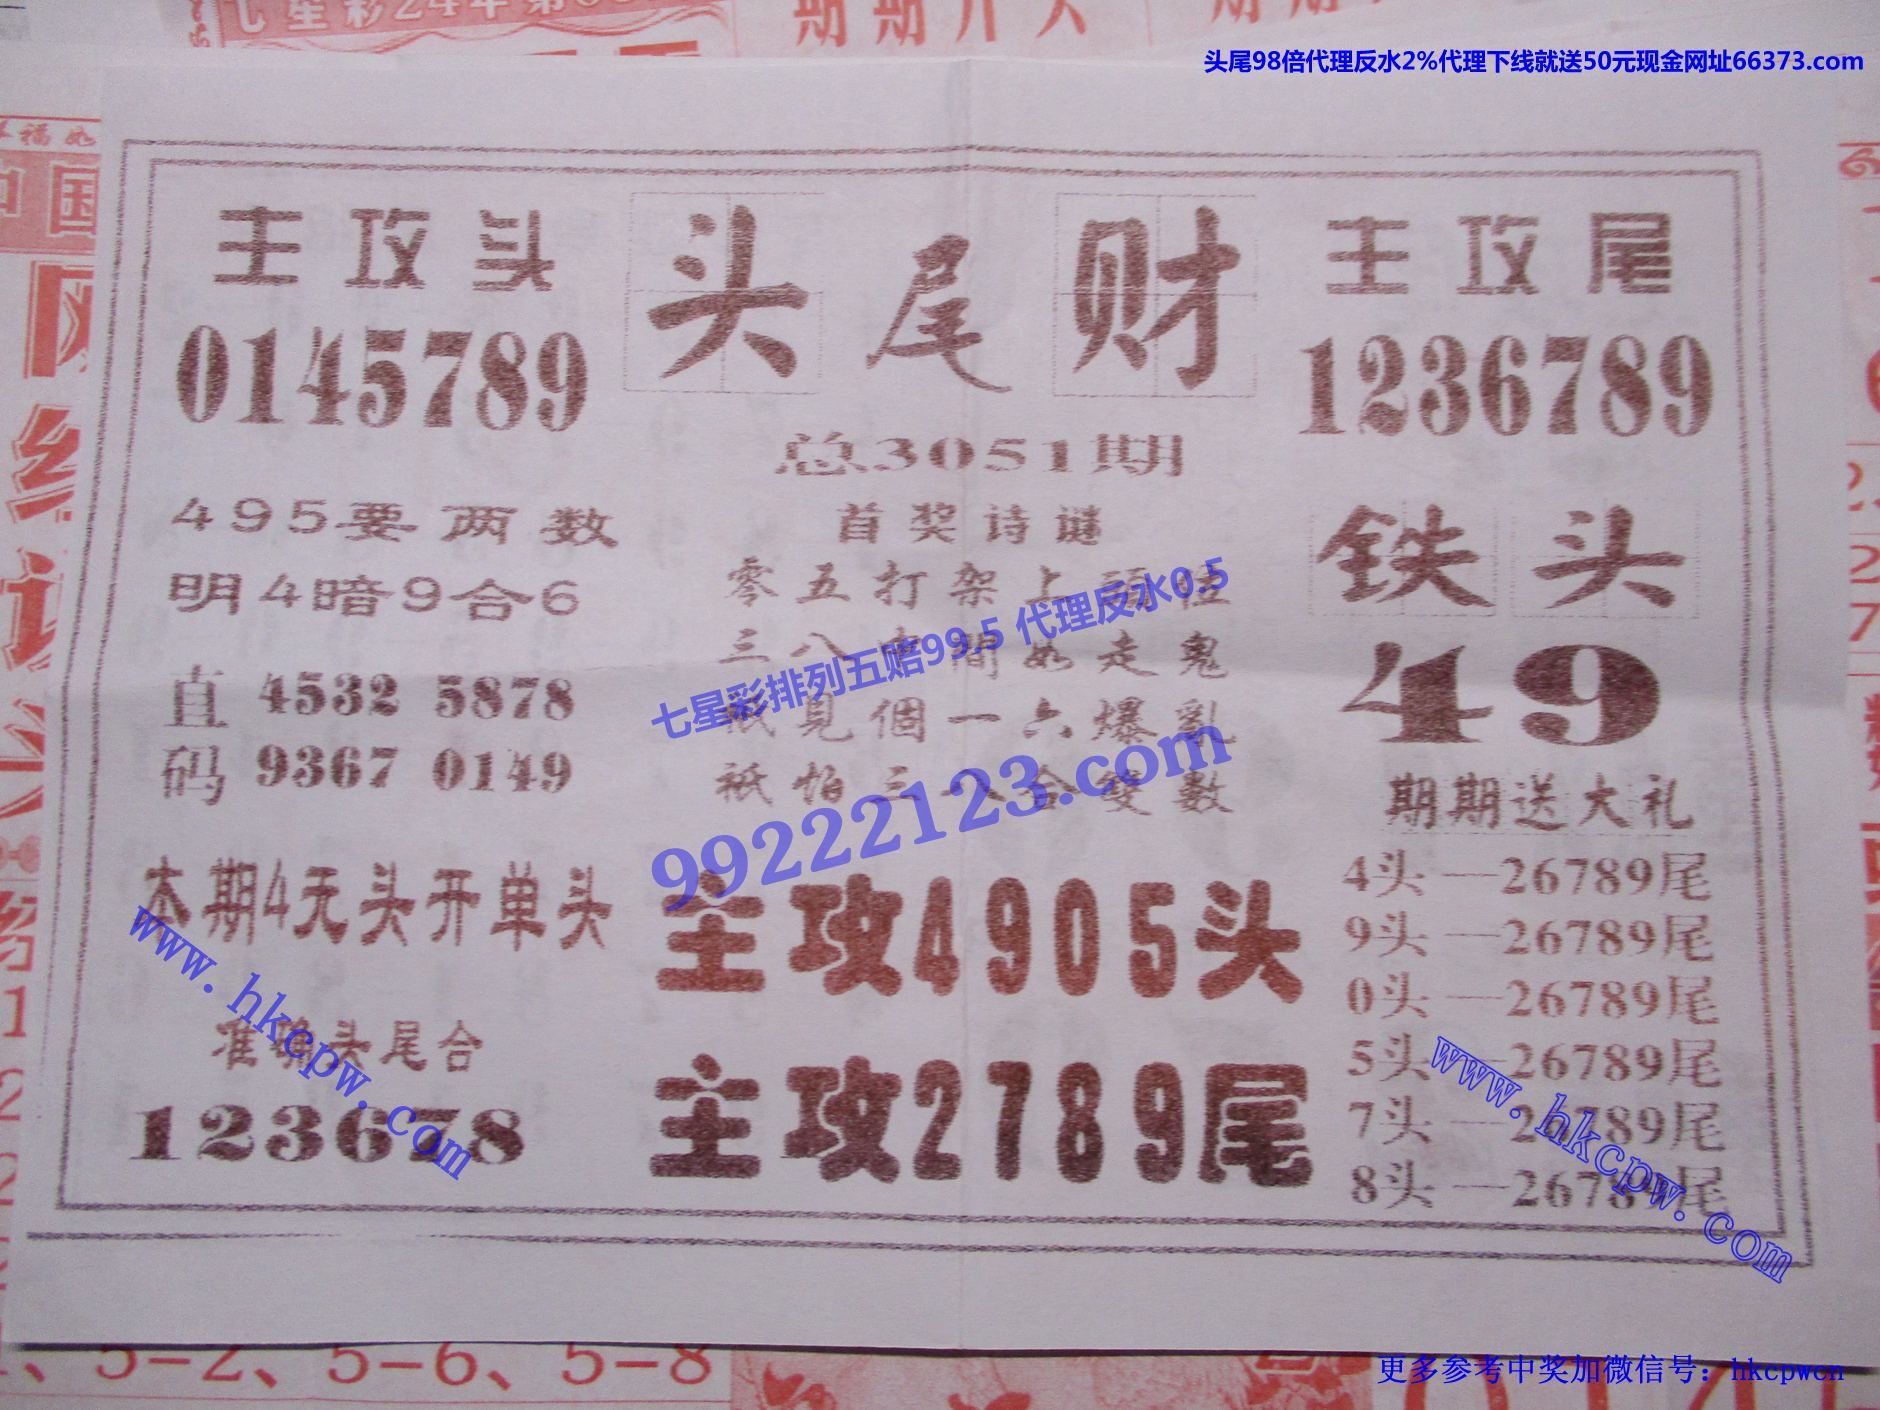 七星彩24年第
期期开大
头尾98倍代理反水2%代理下线就送50元现金网址66373.com
中国
主攻头
0145789
头尾财
主攻尾
1236789
总3051期
495要两数
明4暗9合6
首奖诗谜
零五打架上頭
三八中間如走鬼
祇見個一六爆亂
祇怕三八合雙數
铁头
49
直码
4532 5878
9367 0149
七星彩排列五赔99.5 代理反水0.5
99222123.com
期期送大礼
4头—26789尾
9头—26789尾
0头—26789尾
5头—26789尾
7头—26789尾
8头—26789尾
本期4无头开单头
主攻4905头
准确头尾合
123678
主攻2789尾
www.hkcpw.com
www.hkcpw.com
5-2、5-6、5-8
更多参考中奖加微信号：hkcpwcn